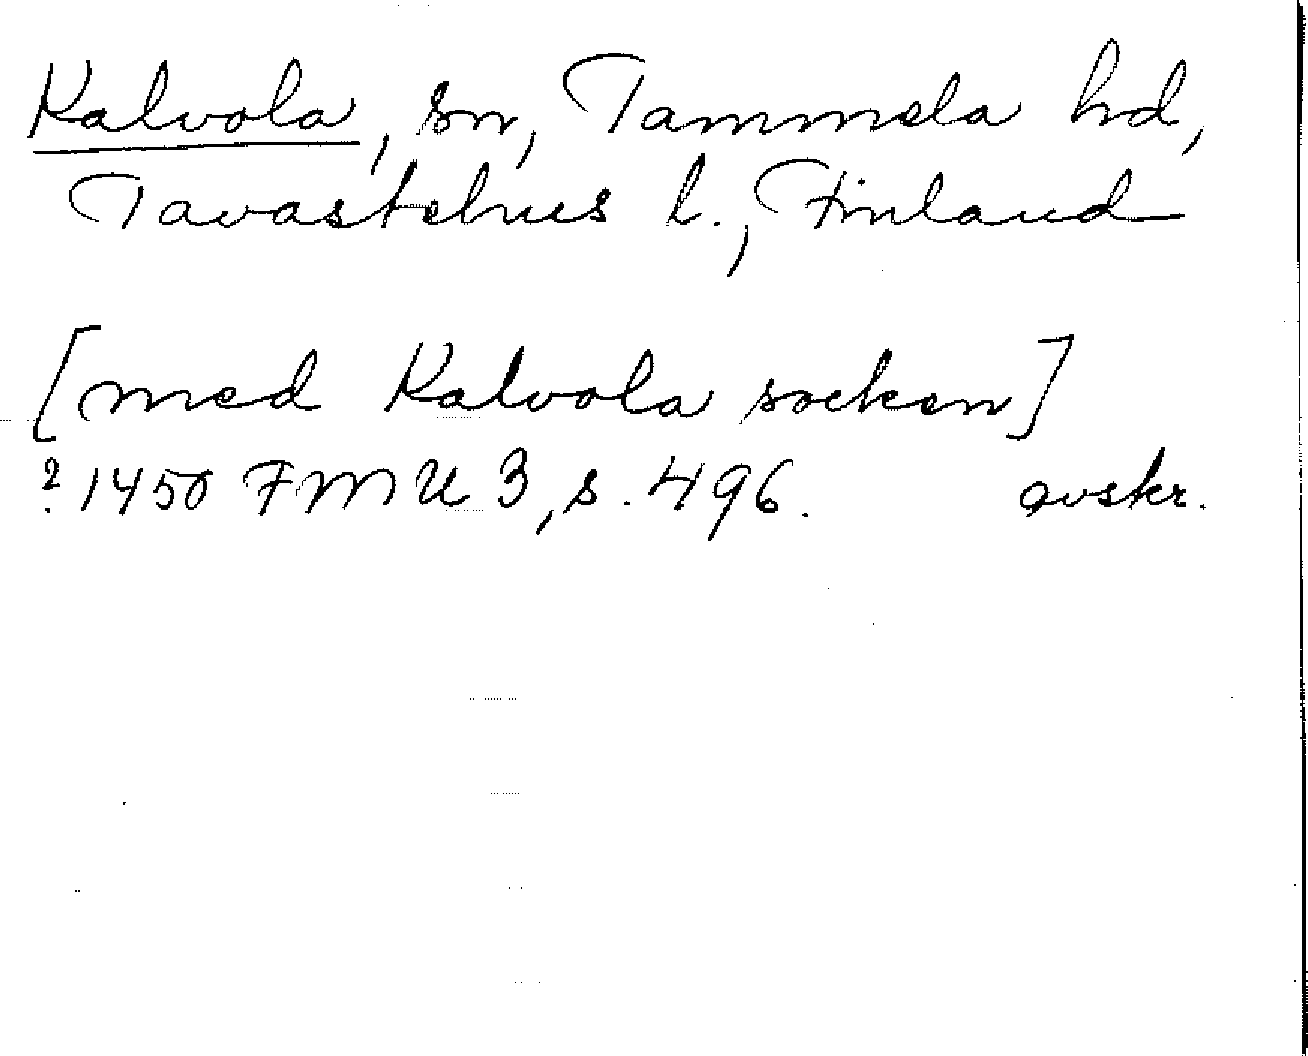 Kalvola, sn, Tammela hd,
Tavastehus l., Finland
[med Kalvola socken]
? 1450 FMU 3, s. 496. avskr.